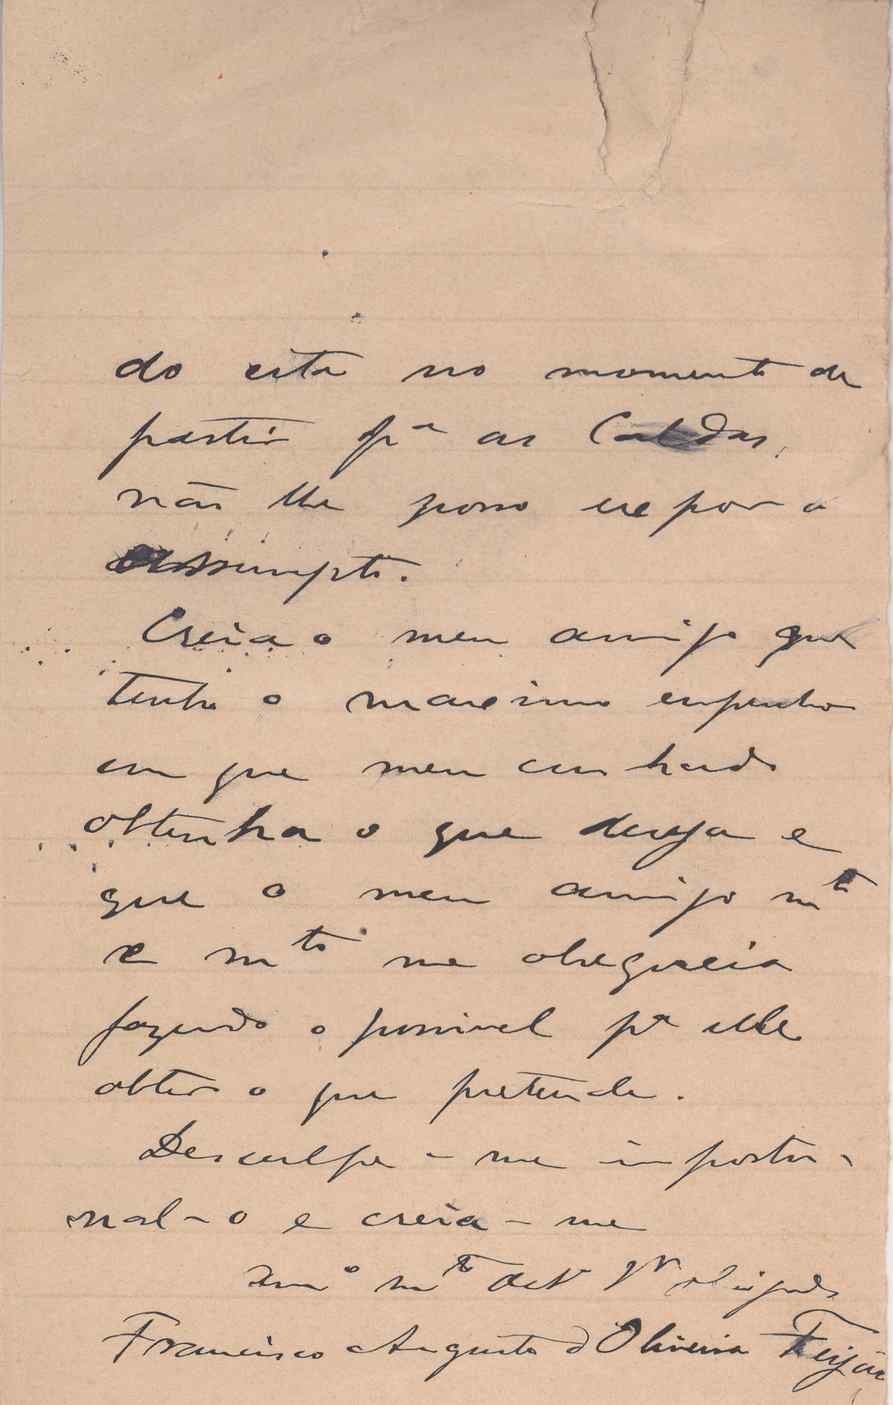 do esta no momento de
partir pª as Caldas,
não lhe posso expor o
assumpto.
Creia o meu amigo que
tenho o maximo empenho
em que meu cunhado
obtenha o que deseja e
que o meu amigo mto
e mto me obsequeia
fazendo o possivel pª elle
obter o que pretende.
Desculpe-me importu-
nal-o e creia-me
mto obrigado
Francisco Augusto d'Oliveira Feijão